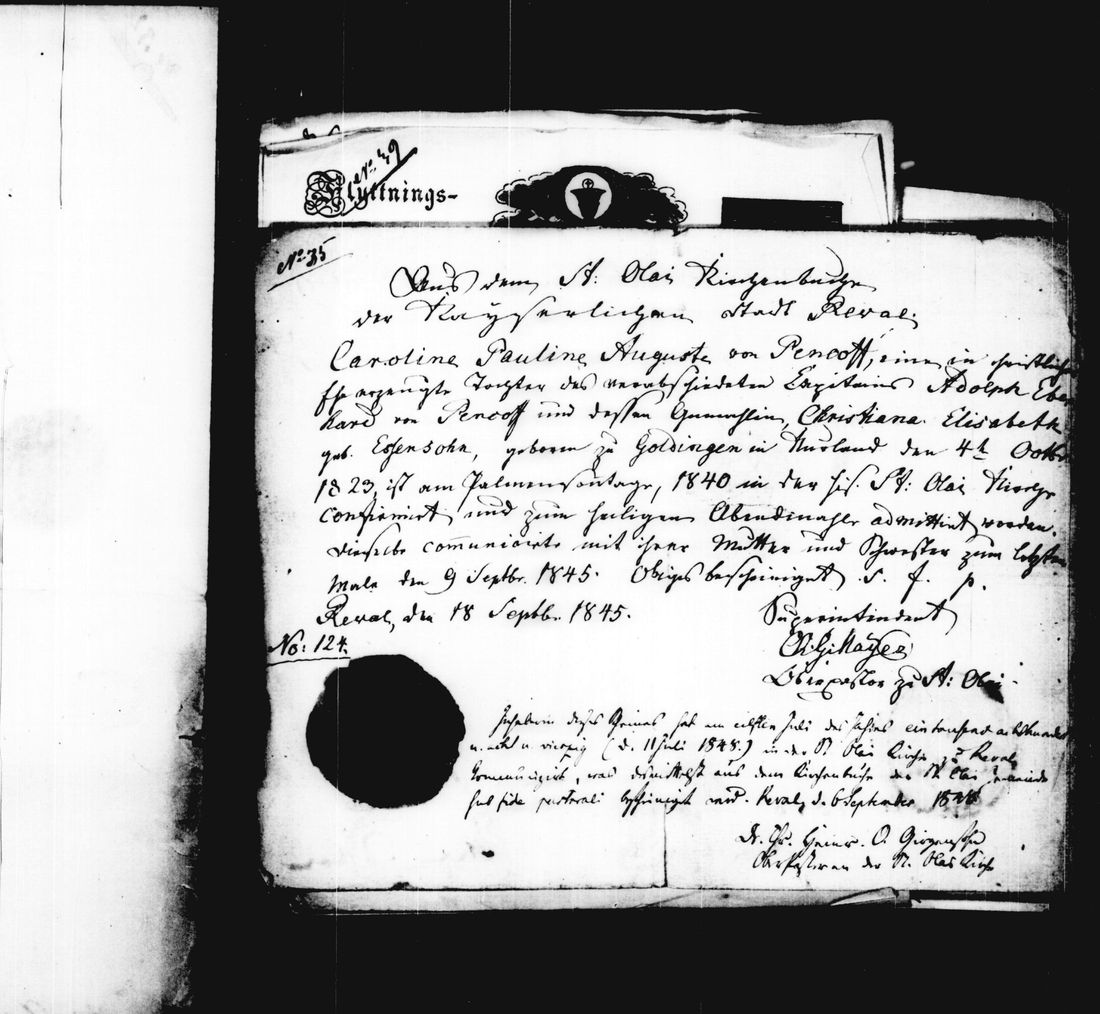 No. 49
Flyttnings-
No. 35
Aus dem St: Olai Kirchenbuche
der Kayserlichen Stadt Reval.
Caroline Pauline Auguste von Pencoff, eine in christlicher
Ehe erzeugte Tochter des verabschiedeten Capitains Adolph Eber
hard von Pencoff und dessen Gemahlin, Christiana Elisabeth
geb. Essensohn, geboren zu Goldingen in Kurland den 4t Octbr
1823, ist am Palmensontage, 1840 in der hies. St: Olai Kirche
confirmirt und zum heiligen Abendmahle admittirt worden.
Dieselbe communicirte mit ihrer Mutter und Schwester zum letzten
Male den 9 Septbr. 1845. Obiges bescheiniget s. f. p.
Reval, den 18 Septbr. 1845.
Superintendent
Mayer
Oberpastor zu St: Olai.
No: 124.
Inhaberin dieses Scheines hat am eilften Juli des Jahres eintausend achthundert
u. acht u. vierzig (d. 11 Juli 1848.) in der St. Olai Kirche zu Reval
Communizirt, was desmittelst aus dem Kirchenbuche der St. Olai Gemeinde
sub fide pastorali bescheinigt wird. Reval, d. 6 September 1848
Dr. Chr. Heinr. O. Girgensohn
Oberpastor an der St. Olai Kirche